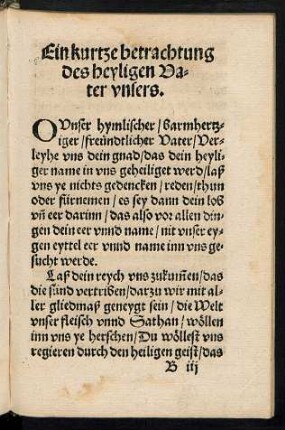 Ein kurtze betrachtung
des heyligen Va-
ter vnsers.
O Vnser hymlischer / barmhertz-
iger / freündtlicher Vater / Ver-
leyhe vns dein gnad / das dein heyli-
ger name in vns geheiliget werd / laß
vns ye nichts gedencken / reden / thun
oder fürnemen / es sey dann dein lob
vñ eer darinn / das also vor allen din-
gen dein eer vnnd name / nit vnser ey-
gen eyttel eer vnnd name inn vns ge-
sucht werde.
Laß dein reych vns zukum̃en / das
die sünd vertriben / darzu wir mit al-
ler gliedmaß geneygt sein / die Welt
vnser fleisch vnnd Sathan / wöllen
inn vns ye herschen / Du wöllest vns
regieren durch den heiligen geist / das
B iij